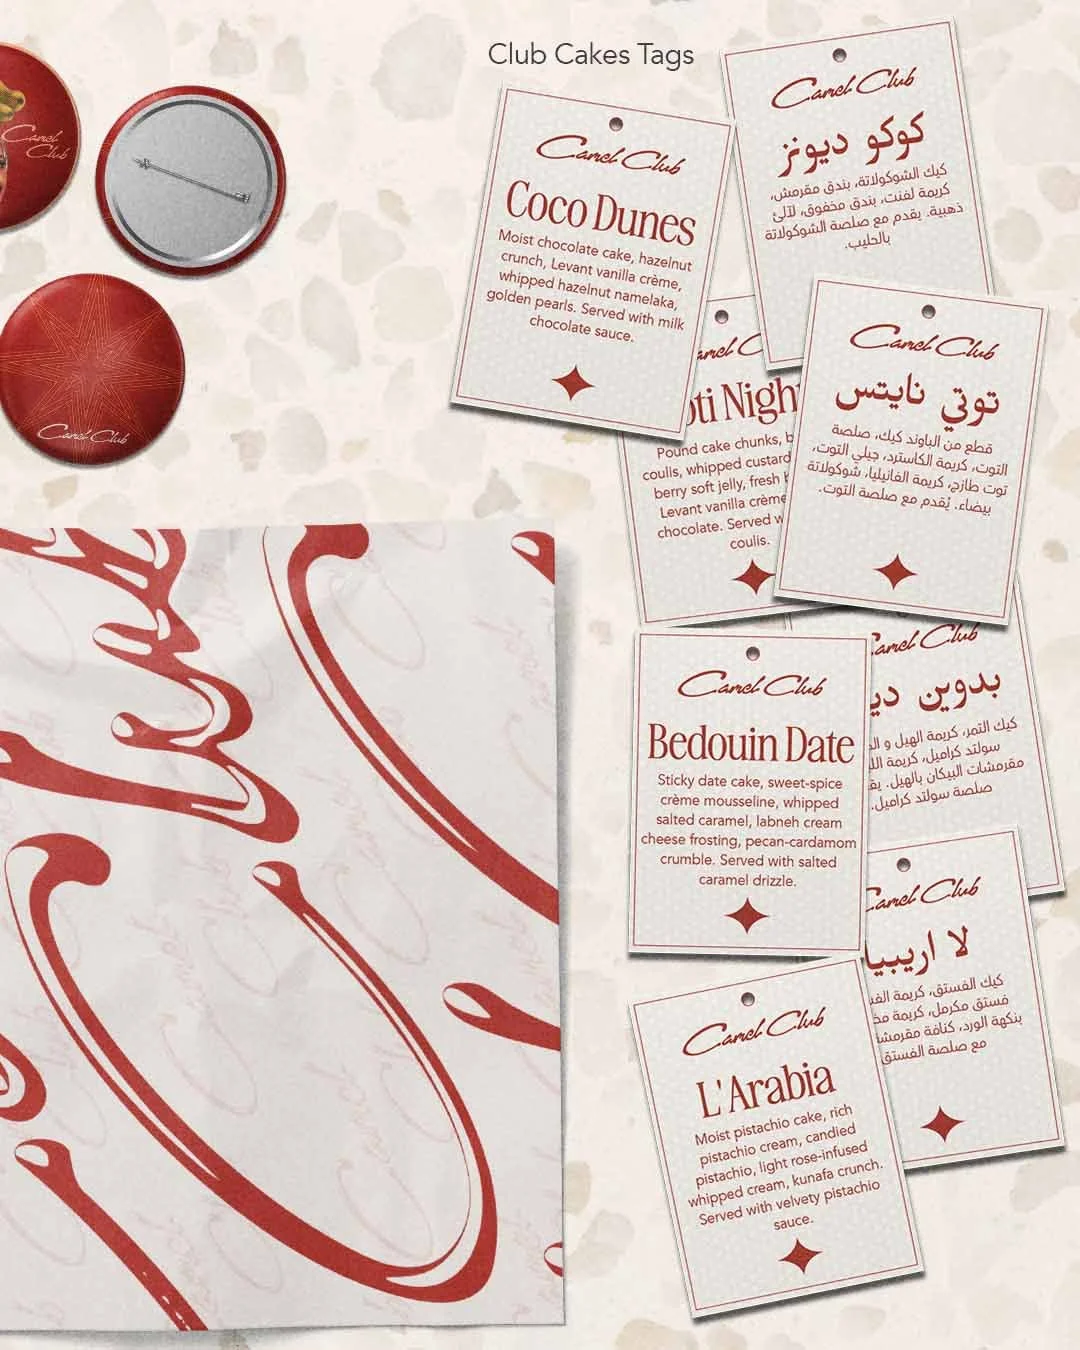 Club Cakes Tags
Camel
Club
Camel Club
Camel Club
Coco Dunes
Moist chocolate cake, hazelnut
crunch, Levant vanilla crème,
whipped hazelnut namelaka,
golden pearls. Served with milk
chocolate sauce.
Camel Club
كوكو ديونز
كيك الشوكولاتة، بندق مقرمش،
كريمة لفنت، بندق مخفوق، لآلئ
ذهبية. يقدم مع صلصة الشوكولاتة
بالحليب.
Pound cake chunks,
coulis, whipped custard
berry soft jelly, fresh
Levant vanilla crème
chocolate. Served
coulis.
Camel Club
توتي نايتس
قطع من الباوند كيك، صلصة
التوت، كريمة الكاسترد، جيلي التوت،
توت طازج، كريمة الفانيليا، شوكولاتة
بيضاء. يُقدم مع صلصة التوت.
Camel Club
Bedouin Date
Sticky date cake, sweet-spice
crème mousseline, whipped
salted caramel, labneh cream
cheese frosting, pecan-cardamom
crumble. Served with salted
caramel drizzle.
Club
بدوين
كيك التمر، كريمة الهيل و
سولتد كراميل، كريمة
مقرمشات البيكان بالهيل.
صلصة سولتد كراميل.
Camel Club
L'Arabia
Moist pistachio cake, rich
pistachio cream, candied
pistachio, light rose-infused
whipped cream, kunafa crunch.
Served with velvety pistachio
sauce.
Club
لا اريبيا
كيك الفستق، كريمة
فستق مكرمل، كريمة
بنكهة الورد، كنافة
مع صلصة الفستق